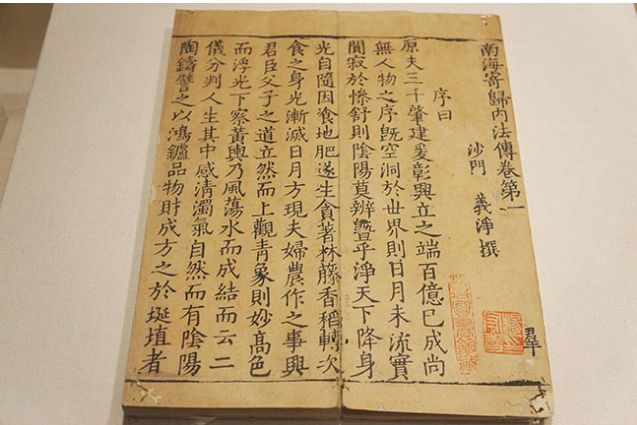 南海寄歸内法傳卷第一
沙門 義淨 撰
序曰
原夫三千肇建爰彰興立之端百億已成尚
無人物之序既空洞於世界則日月未流實
閴寂於慘舒則陰陽莫辨曁乎淨天下降身
光自隨因飡地肥遂生貪著林藤香稻轉次
食之身光漸滅日月方現夫婦農作之事興
君臣父子之道立然而上觀青象則妙高色
而浮光下察黄輿乃風蕩水而成結而云二
儀分判人生其中感清濁氣自然而有陰陽
陶鑄譬之以鴻鑪品物財成方之於埏埴者